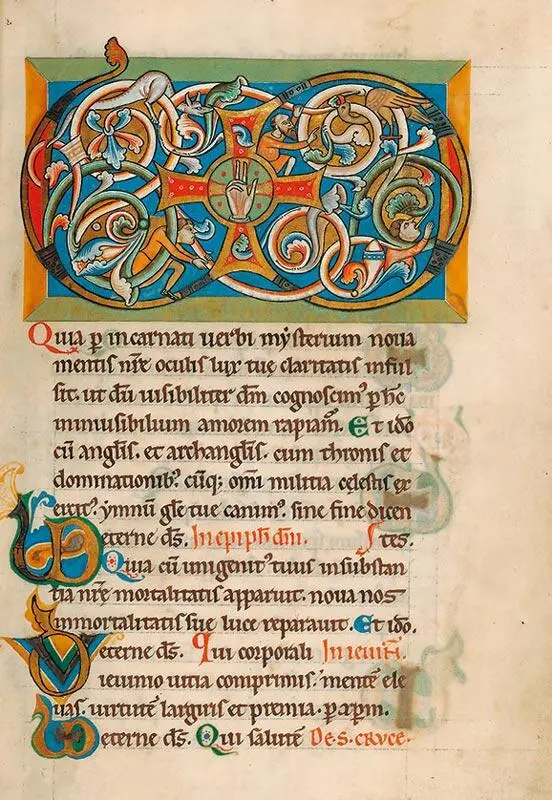 Quia ꝑ incarnati uerbi mẏsterium noua
mentis nr̄e oculis lux tuę claritatis inful
sit. ut dū uisibiliter dm̄ cognoscimꝰ ꝑ hc̄
inuisibilium amorem rapiamꝰ. Et ido
cū angl̄is. et archangl̄is. cum thronis et
dominationibꝰ cūq; om̄i militia celestis ex
ercitꝰ ẏmnū gl̄e tue canimꝰ. sine fine dicen
VD eterne ds̄. In epiph̄ dn̄i. tes.
Quia cū unigenitꝰ tuus in substan
tia nr̄e mortalitatis apparuit. noua nos
immortalitatis sue luce reparauit. Et ido.
VD eterne ds̄. Qui corporali In ieiun̄.
ieiunio uitia comprimis. mentē ele
uas. uirtutē largiris et premia. ꝑ xp̄m.
VD eterne ds̄. Qui salutē DE. S. CRVCE.